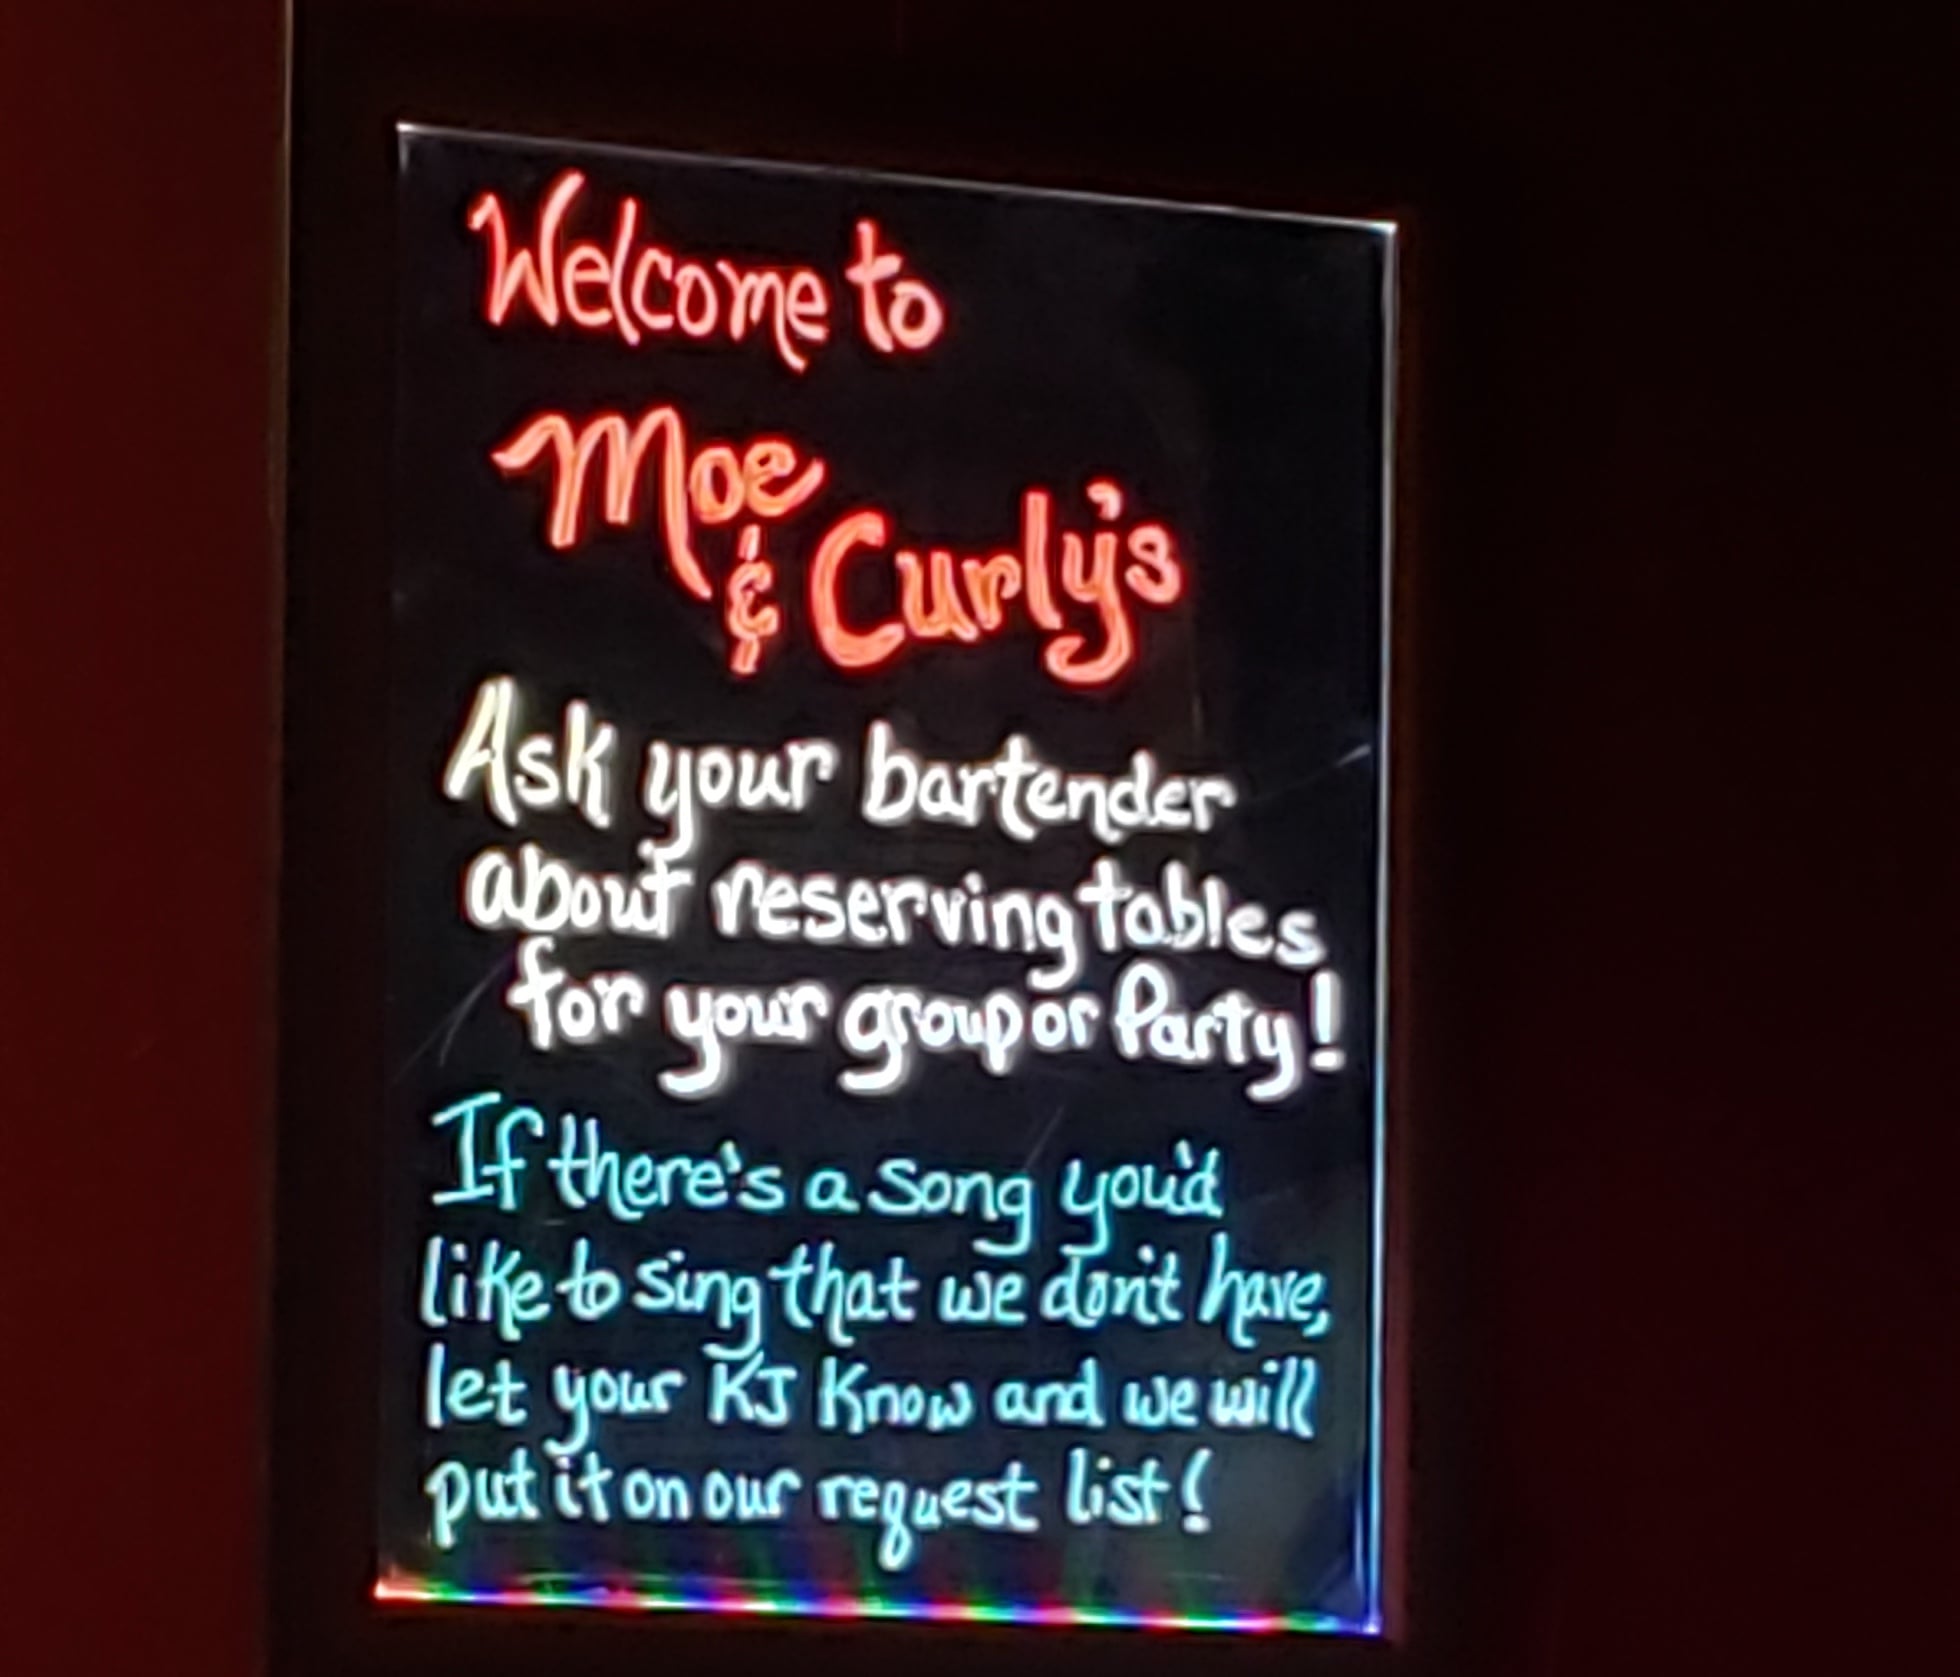 Welcome to
Moe
& Curly's
Ask your bartender
about reserving tables
for your group or Party!
If there's a song you'd
like to sing that we don't have,
let your KJ Know and we will
put it on our request list!